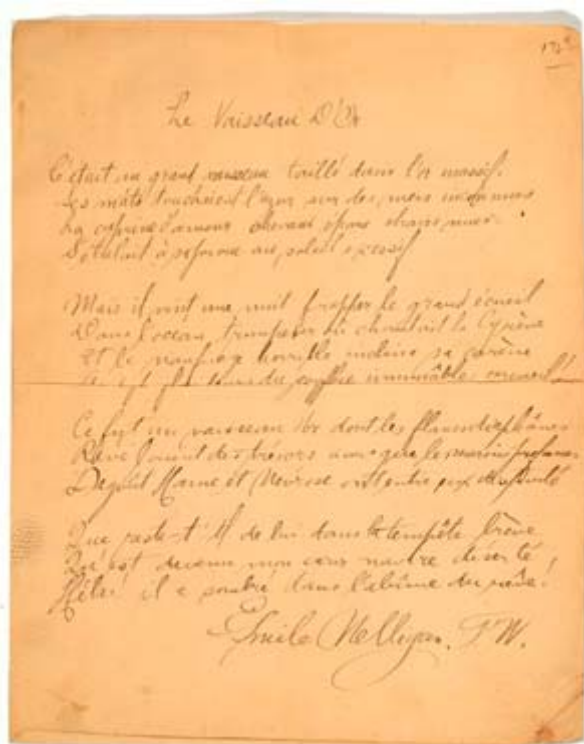 Le Vaisseau D'Or
C'était un grand vaisseau taillé dans l'or massif.
Ses mâts touchaient l'azur sur des mers inconnues
La d'amour cheveux épars chairs nues
S'étalait à sa proue au soleil excessif
Mais il vint une nuit frapper le grand écueil
Dans l'océan trompeur où chantait la Cyrène
Et le naufrage horrible inclina sa carène
du gouffre immuable cercueil
Ce fut un vaisseau d'or dont les flancs diaphanes
des trésors que les marins profanes
Dégoût Haine et Névrose ont entre eux
Que reste-t'Il de lui dans la tempête brève
Qu'est devenu mon cœur navire déserté
Hélas! il a sombré dans l'abîme du rêve!
Emile Nelligan.